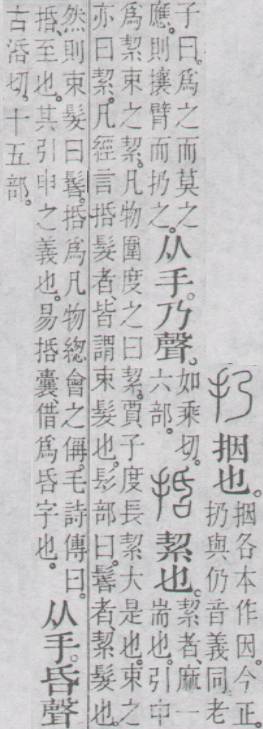 扔捆也。捆各本作因。今正。
扔與仍音義同。老
子曰。爲之而莫之
應。則攘臂而扔之。从手。乃聲。如乘切。
六部。括絜也。絜者、麻一
耑也。引申
爲絜束之絜。凡物圍度之曰絜。賈子度長絜大是也。束之
亦曰絜。凡經言括髮者、皆謂束髮也。髟部曰。髺者、絜髮也。
然則束髮曰髺。括爲凡物總會之偁。毛詩傳曰。
括、至也。其引申之義也。易括囊、借爲昏字也。从手。昏聲
古活切。十五部。